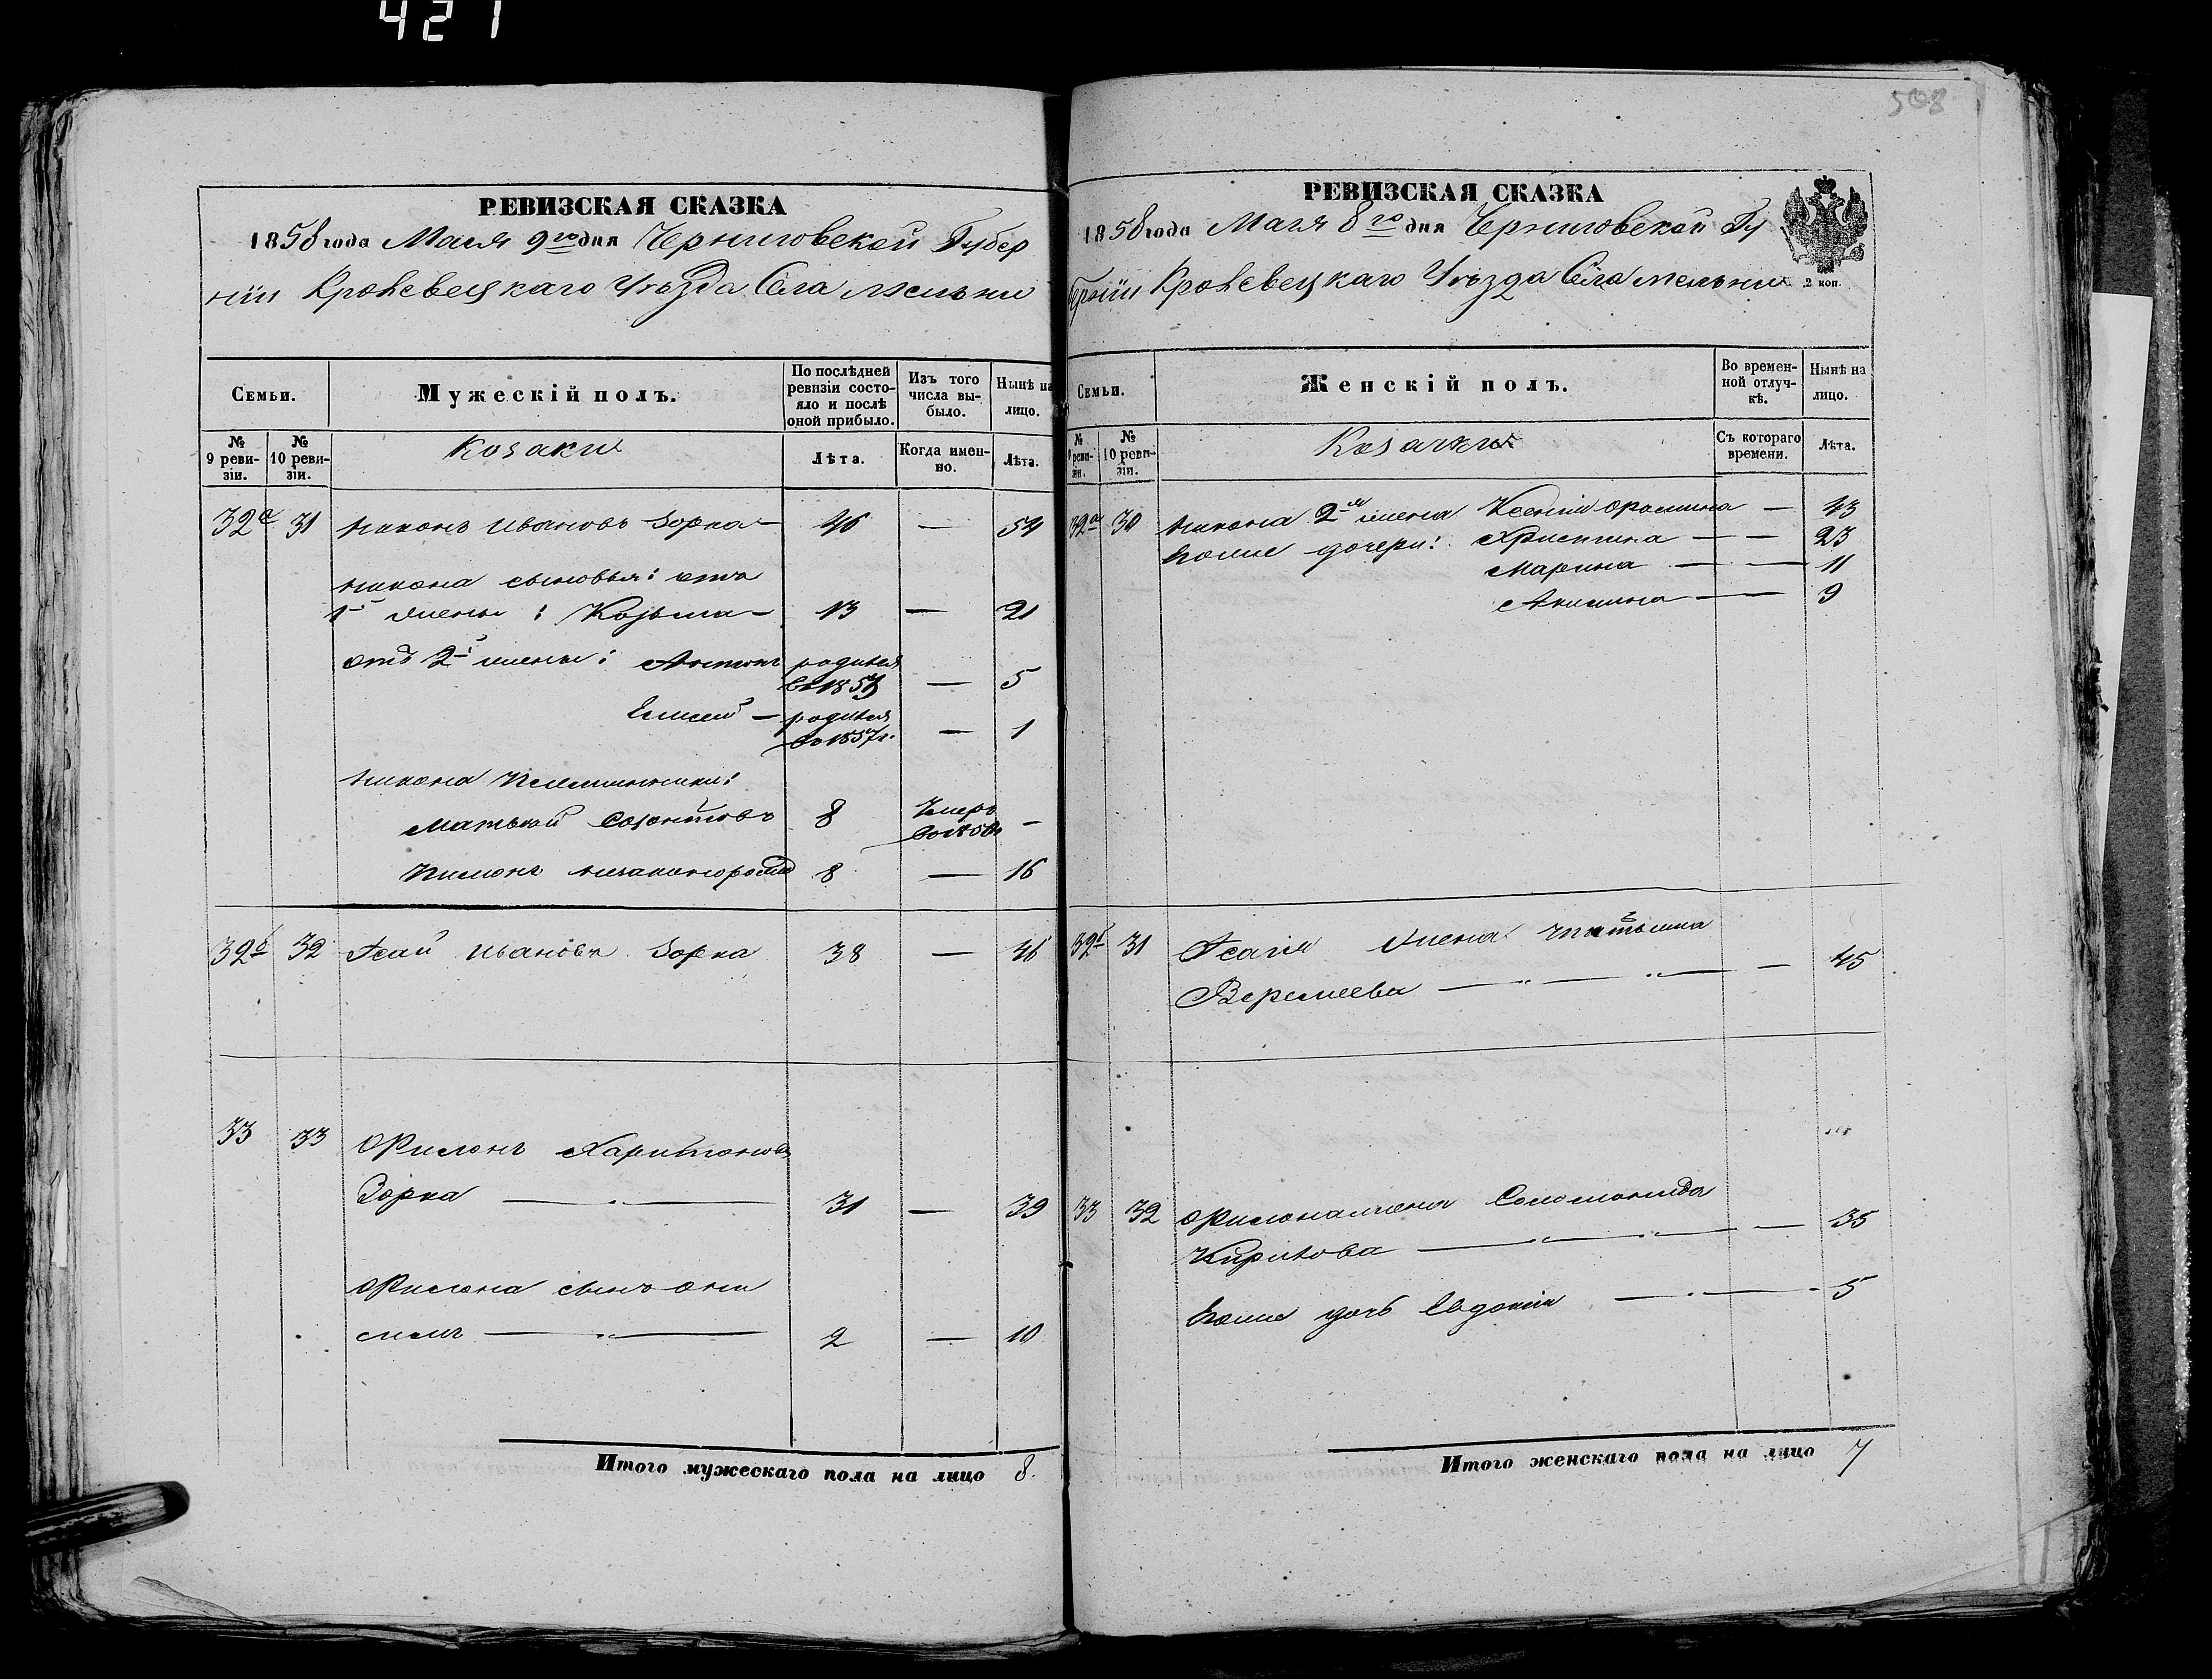 421
508
РЕВИЗСКАЯ СКАЗКА
1858 года Маія 9го дня Черниговской Губер
ніи Кролевецкаго Уѣзда Села Мельни
Семьи.
Мужескій полъ.
По послѣдней ревизіи состояло и послѣ оной прибыло.
Изъ того числа выбыло.
Нынѣ на лицо.
№ 9 ревизіи.
№ 10 ревизіи.
Козаки
Лѣта.
Когда именно.
Лѣта.
32а 31 Никонъ Ивановъ Зорка 46 — 54
Никона сыновья: отъ
1й жены: Козьма 13 — 21
отъ 2й жены: Антонъ родился
въ 1853 — 5
Елисей — родился
въ 1857г. — 1
Никона племянники:
Матвѣй Созонтовъ 8 Умеръ
въ 1850 —
Пилипъ незаконорожд 8 — 16
32б 32 Исай Ивановъ Зорка 38 — 46
33 33 Филонъ Харитоновъ
Зорка — 31 — 39
Филона сынъ Они
симъ — 2 — 10
Итого мужескаго пола на лицо 8.
РЕВИЗСКАЯ СКАЗКА
1858 года Маія 8го дня Черниговской Гу
берніи Кролевецкаго Уѣзда Села Мельни
2 коп.
Семьи.
Женскій полъ.
Во временной отлучкѣ.
Нынѣ на лицо.
№ 9 ревизіи.
№ 10 ревизіи.
Козачки
Съ котораго времени.
Лѣта.
32а 30 Никона 2я жена Ксенія Фомина — 43
Ихъ дочери: Христина — 23
Марина — 11
Акилина — 9
32б 31 Исаія жена
Веремеева — 45
33 32 Филона жена Соломонида
Кирилова — 35
дочь Евдокія — 5
Итого женскаго пола на лицо 7